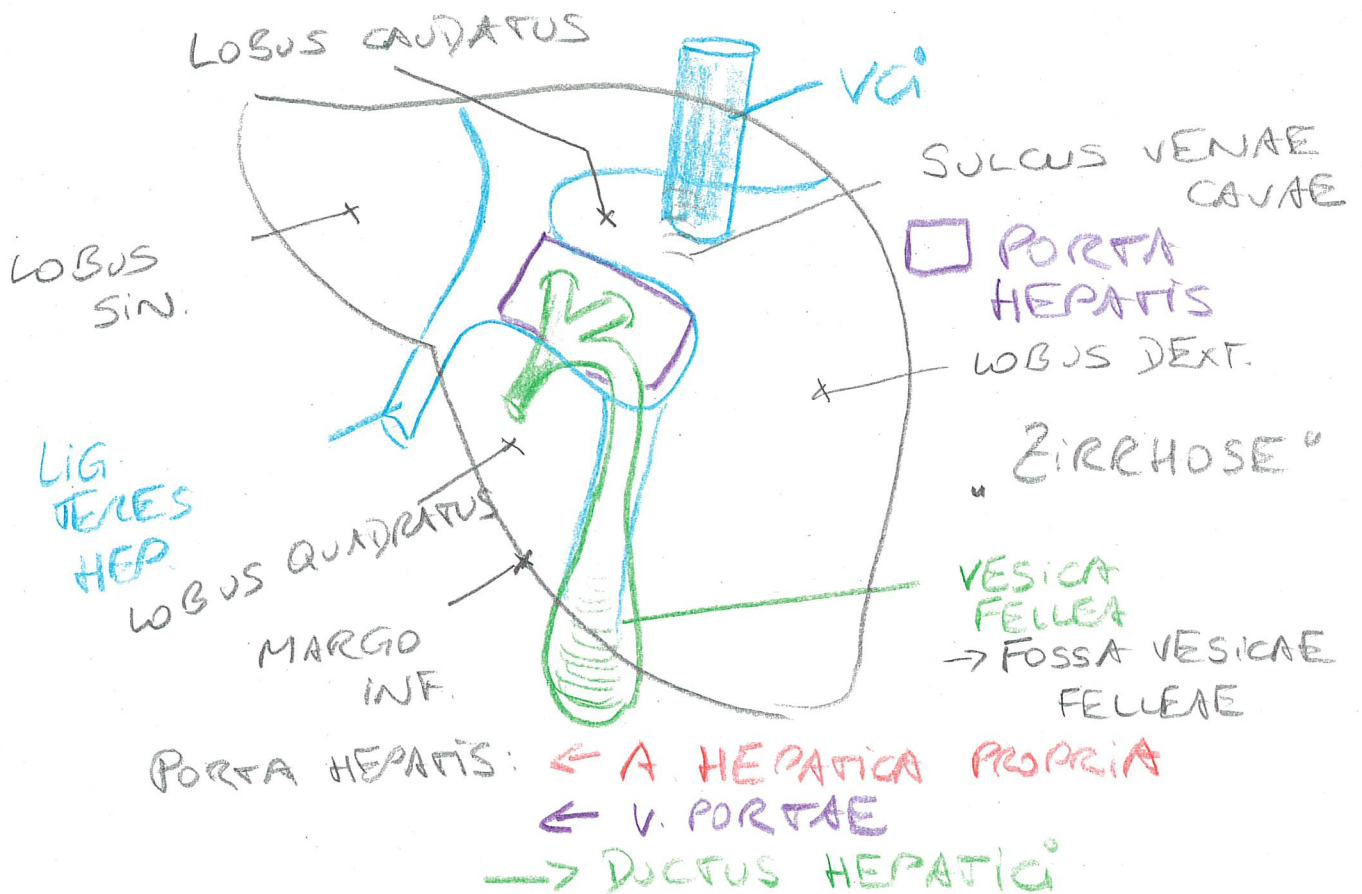 LOBUS CAUDATUS
VCi
SULCUS VENAE
CAVAE
PORTA
HEPATIS
LOBUS
SIN.
LOBUS DEXT.
„ZIRRHOSE"
LIG.
TERES
HEP.
LOBUS QUADRATUS
MARGO
INF.
VESICA
FELLEA
→ FOSSA VESICAE
FELLEAE
PORTA HEPATIS: ← A. HEPATICA PROPRIA
← V. PORTAE
→ DUCTUS HEPATICI